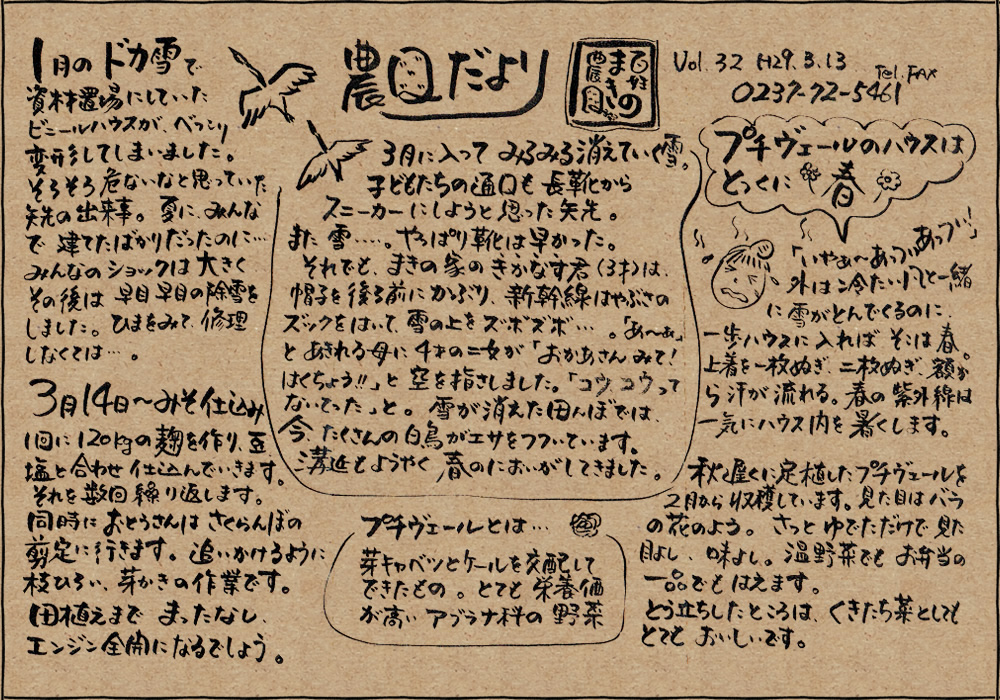 農園だより
百姓
まきの
農園
Vol. 32 H29.3.13
Tel.FAX
0237-72-5461
1月のドカ雪で
資材置場にしていた
ビニールハウスが、べっこり
変形してしまいました。
そろそろ危ないなと思っていた
矢先の出来事。夏に、みんな
で建てたばかりだったのに…
みんなのショックは大きく
その後は早目早目の除雪を
しました。ひまをみて、修理
しなくては…。
3月14日〜みそ仕込み
1回に120kgの麹を作り、豆
塩と合わせ仕込んでいきます。
それを数回繰り返します。
同時におとうさんはさくらんぼの
剪定に行きます。追いかけるように
枝ひろい、芽かきの作業です。
田植えまで まったなし、
エンジン全開になるでしょう。
3月に入って みるみる消えていく雪。
子どもたちの通口も長靴から
スニーカーにしようと思った矢先。
また雪……。やっぱり靴は早かった。
それでも、まきの家のきかなす君(3才)は、
帽子を後ろ前にかぶり、新幹線はやぶさの
ズックをはいて、雪の上をズボズボ…。「あ〜ぁ」
とあきれる母に4才の二女が「おかあさんみて!
はくちょう!!」と空を指さしました。「コウコウって
ないてった」と。雪が消えた田んぼでは、
今、たくさんの白鳥がエサをフフいています。
溝延もようやく春のにおいがしてきました。
プチヴェールとは…
芽キャベツとケールを交配して
できたもの。とても栄養価
が高いアブラナ科の野菜
プチヴェールのハウスは
とっくに春
「いやぁ〜あっついあっづ!」
外は冷たい風と一緒
に雪がとんでくるのに、
一歩ハウスに入ればそこは春。
上着を一枚ぬぎ、二枚ぬぎ、額か
ら汗が流れる。春の紫外線は
一気にハウス内を暑くします。
秋遅くに定植したプチヴェールを
2月から収穫しています。見た目はバラ
の花のよう。さっとゆでただけで見た
目よし、味よし。温野菜でもお弁当の
一品でもはえます。
とう立ちしたところは、くきたち菜としても
とてもおいしいです。